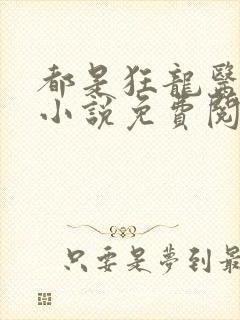 都是狂龍醫
小說免費閱
只要是夢到最